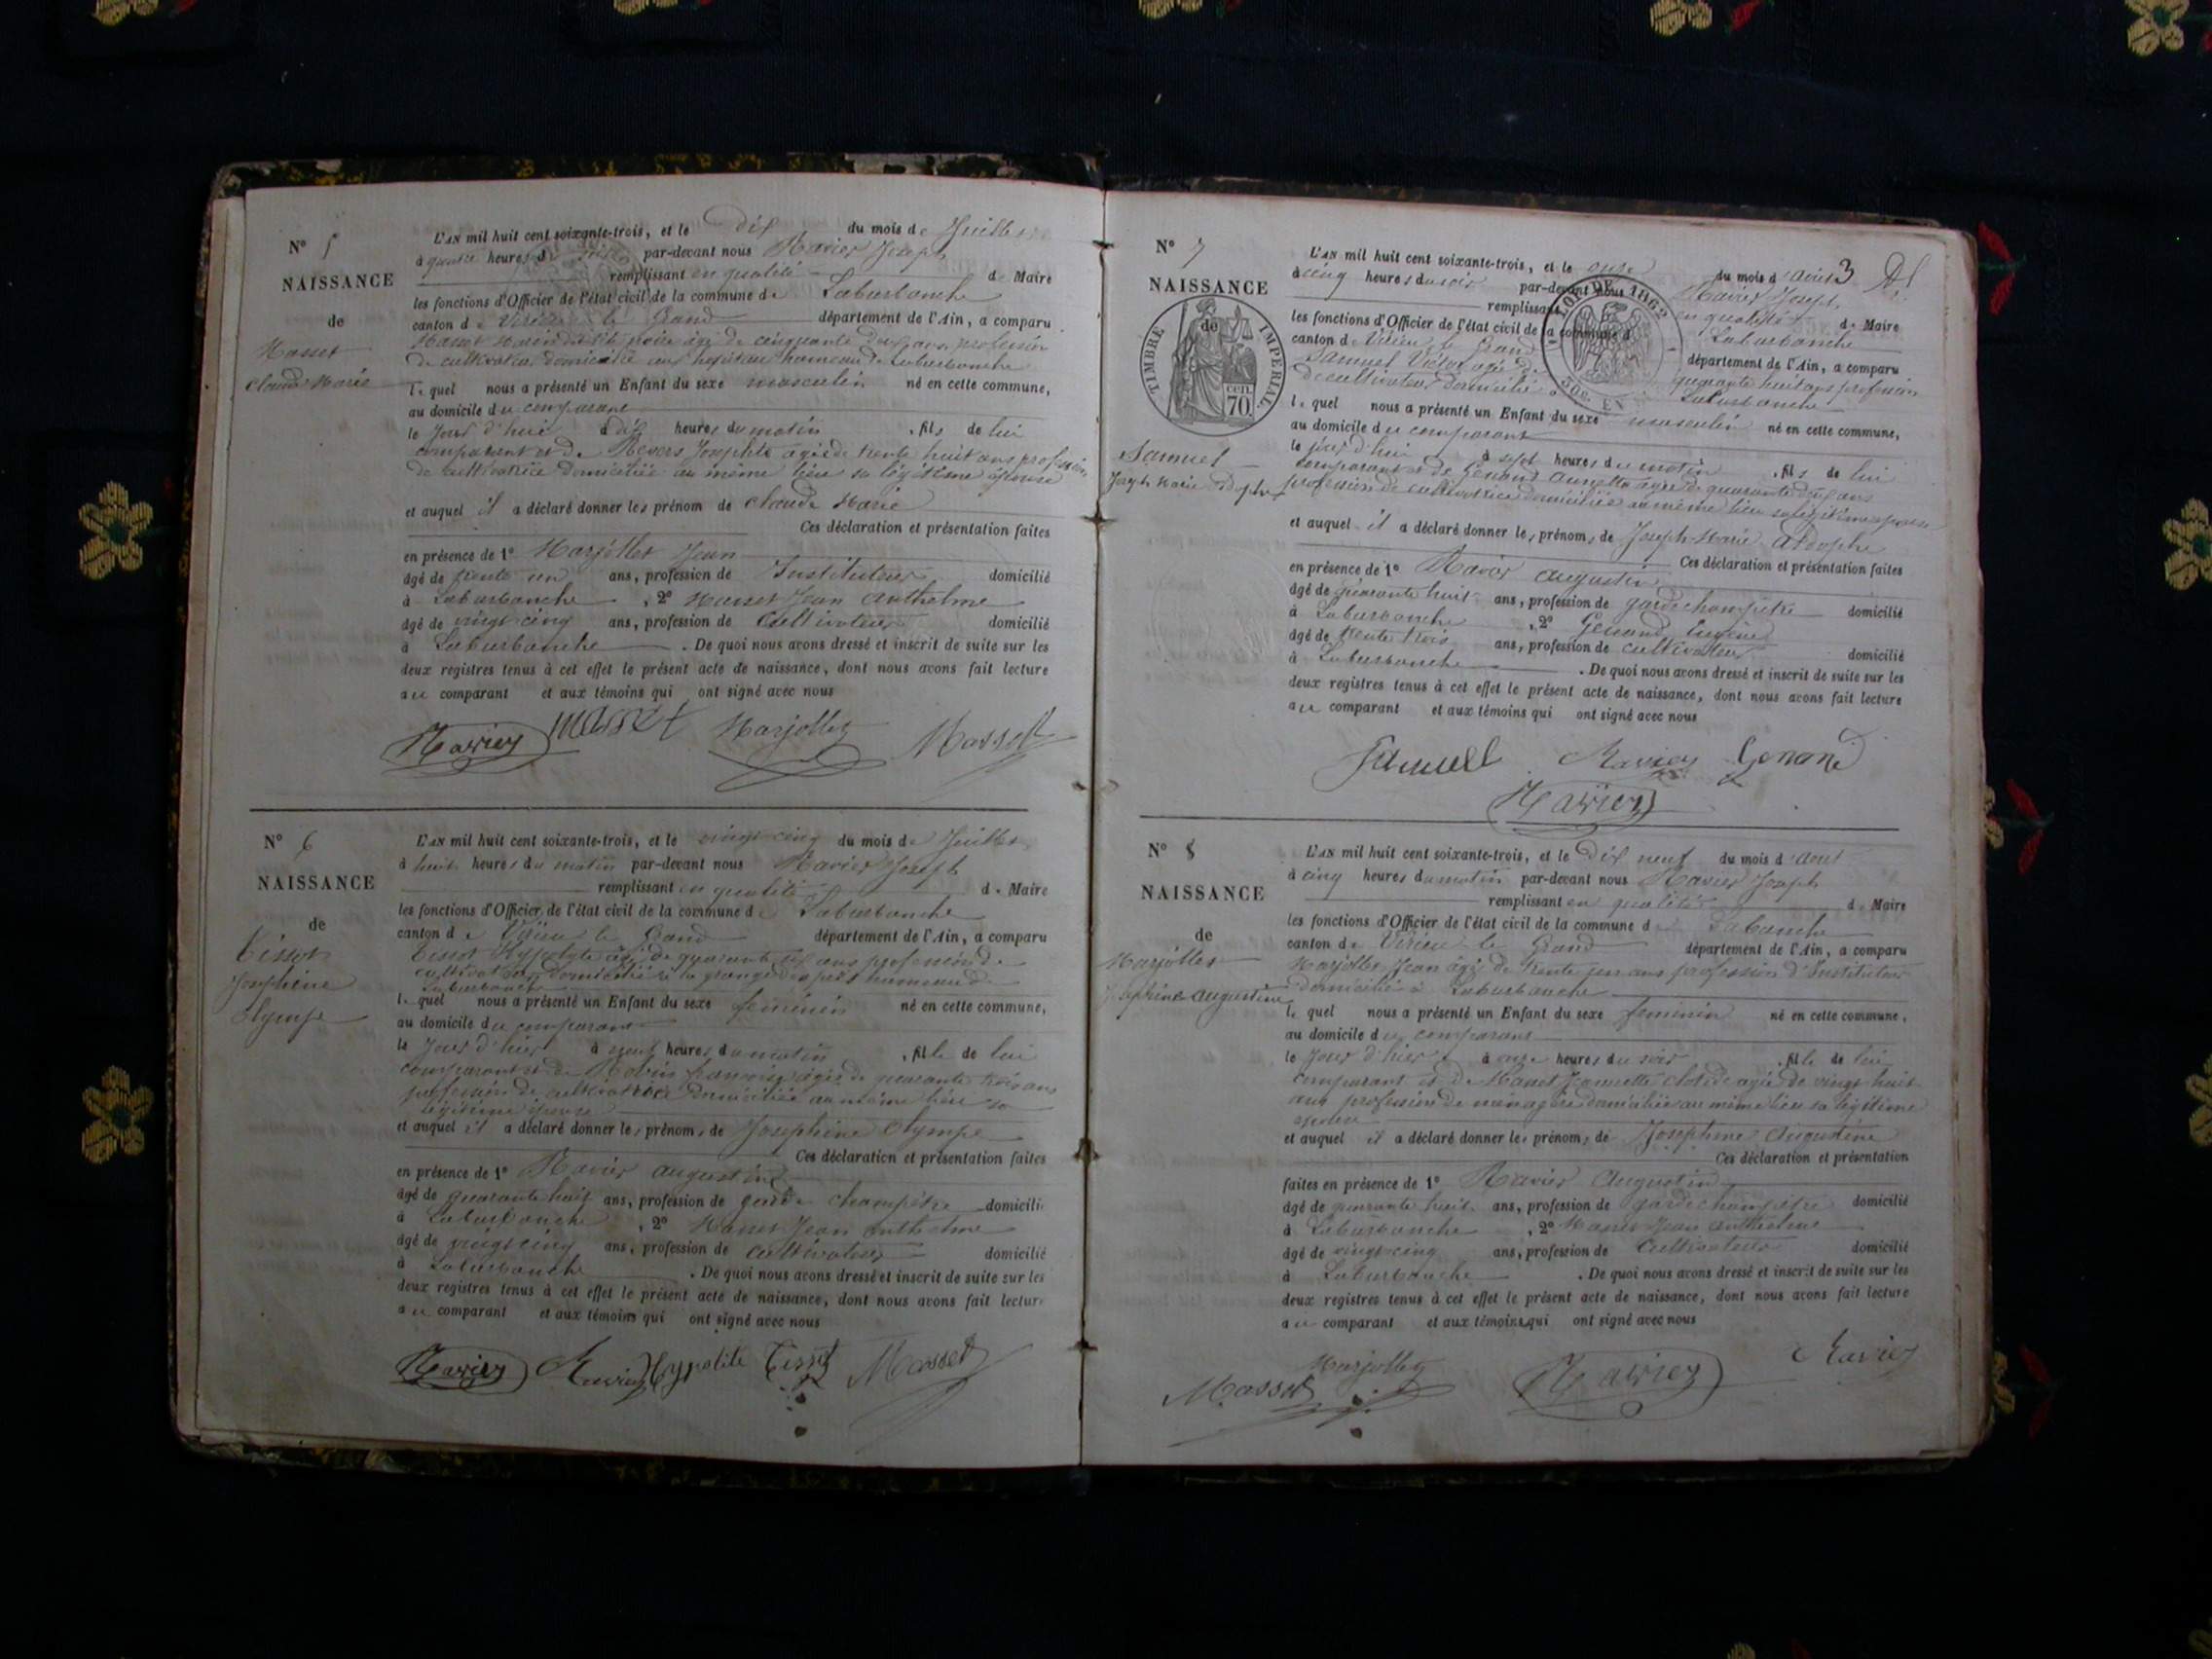 N° 5
NAISSANCE
de
Masset
Claude Marie
L'AN mil huit cent soixante-trois, et le Dix du mois de Juillet
à quatre heures du soir par-devant nous Ravier Joseph
remplissant en qualité de Maire
les fonctions d'Officier de l'état civil de la commune de Laburbanche
canton de Virieu le Grand département de l'Ain, a comparu
Masset père âgé de cinquante ans profession
de cultivateur domicilié hameau de Laburbanche
Le quel nous a présenté un Enfant du sexe masculin né en cette commune,
au domicile du comparant
le jour d'hui à dix heures du matin , fils de lui
comparant et de Josephte agée de trente huit ans profession
de cultivatrice domiciliée au même lieu sa légitime épouse
et auquel il a déclaré donner les prénom de Claude Marie
Ces déclaration et présentation faites
en présence de 1° Marjollet Jean
âgé de trente un ans, profession de Instituteur domicilié
à Laburbanche , 2° Masset Jean Anthelme
âgé de vingt cinq ans, profession de Cultivateur domicilié
à Laburbanche . De quoi nous avons dressé et inscrit de suite sur les
deux registres tenus à cet effet le présent acte de naissance, dont nous avons fait lecture
au comparant et aux témoins qui ont signé avec nous
Ravier masset Marjollet Masset
N° 6
NAISSANCE
de
Tissot
Josephine
Olympe
L'AN mil huit cent soixante-trois, et le vingt cinq du mois de Juillet
à huit heures du matin par-devant nous Ravier Joseph
remplissant en qualité de Maire
les fonctions d'Officier de l'état civil de la commune de Laburbanche
canton de Virieu le Grand département de l'Ain, a comparu
Tissot Hyppolyte âgé de quarante ans profession de
cultivateur domicilié à la grange des prés hameau de
Laburbanche
le quel nous a présenté un Enfant du sexe feminin né en cette commune,
au domicile du comparant
le jour d'hier à neuf heures du matin , fille de lui
comparant et de françoise agée de quarante trois ans
profession de cultivatrice domiciliée au même lieu sa
légitime épouse
et auquel il a déclaré donner les prénoms de Josephine Olympe
Ces déclaration et présentation faites
en présence de 1° Ravier Augustin
âgé de quarante huit ans, profession de garde champêtre domicilié
à Laburbanche , 2° Masset Jean Anthelme
âgé de vingt cinq ans, profession de Cultivateur domicilié
à Laburbanche . De quoi nous avons dressé et inscrit de suite sur les
deux registres tenus à cet effet le présent acte de naissance, dont nous avons fait lecture
au comparant et aux témoins qui ont signé avec nous
Ravier Ravier Hyppolite Tissot Masset
3
N° 7
NAISSANCE
de
TIMBRE IMPERIAL
70 cen
LOI DE 1862
Samuel
Joseph Marie Adophe
L'AN mil huit cent soixante-trois, et le onze du mois d'Août
à cinq heures du soir par-devant nous Ravier Joseph
remplissant en qualité de Maire
les fonctions d'Officier de l'état civil de la commune de Laburbanche
canton de Virieu le Grand département de l'Ain, a comparu
Samuel Victor agé de quarante huit ans profession
de cultivateur domicilié à Laburbanche
le quel nous a présenté un Enfant du sexe masculin né en cette commune,
au domicile du comparant
le jour d'hui à sept heures du matin , fils de lui
comparant et de Genand Annette agée de quarante deux ans
profession de cultivatrice domiciliée au même lieu sa légitime épouse
et auquel il a déclaré donner les prénoms de Joseph-Marie Adophe
Ces déclaration et présentation faites
en présence de 1° Ravier Augustin
âgé de quarante huit ans, profession de garde champêtre domicilié
à Laburbanche , 2° Genand Eugène
âgé de trente trois ans, profession de cultivateur domicilié
à Laburbanche . De quoi nous avons dressé et inscrit de suite sur les
deux registres tenus à cet effet le présent acte de naissance, dont nous avons fait lecture
au comparant et aux témoins qui ont signé avec nous
Samuel Ravier Genand
Ravier
N° 8
NAISSANCE
de
Marjollet
Josephine Augustine
L'AN mil huit cent soixante-trois, et le Dix neuf du mois d'Aout
à cinq heures du matin par-devant nous Ravier Joseph
remplissant en qualité de Maire
les fonctions d'Officier de l'état civil de la commune de Labanche
canton de Virieu le Grand département de l'Ain, a comparu
Marjollet Jean âgé de trente un ans profession d'Instituteur
domicilié à Laburbanche
le quel nous a présenté un Enfant du sexe feminin né en cette commune,
au domicile du comparant
le jour d'hier à onze heures du soir , fille de lui
comparant et de Masset Jeannette Clotide agée de vingt huit
ans profession de ménagère domiciliée au même lieu sa légitime
épouse
et auquel il a déclaré donner les prénoms de Josephine Augustine
Ces déclaration et présentation
faites en présence de 1° Ravier Augustin
âgé de quarante huit ans, profession de garde champêtre domicilié
à Laburbanche , 2° Masset Jean Anthelme
âgé de vingt cinq ans, profession de Cultivateur domicilié
à Laburbanche . De quoi nous avons dressé et inscrit de suite sur les
deux registres tenus à cet effet le présent acte de naissance, dont nous avons fait lecture
au comparant et aux témoins qui ont signé avec nous
Masset Marjollet Ravier Ravier